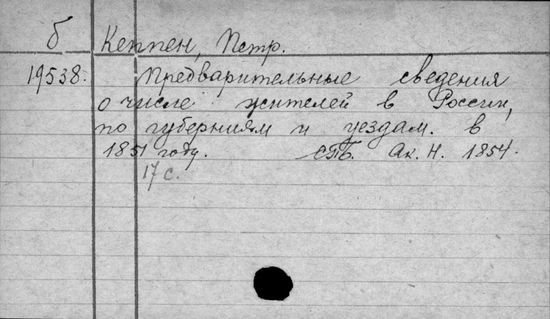 б Кеппен, Петр.
19538. Предварительные сведения
о числе жителей в России,
по губерниям и уездам. в
1851 году. СПБ. Ак. Н. 1854.
17 с.